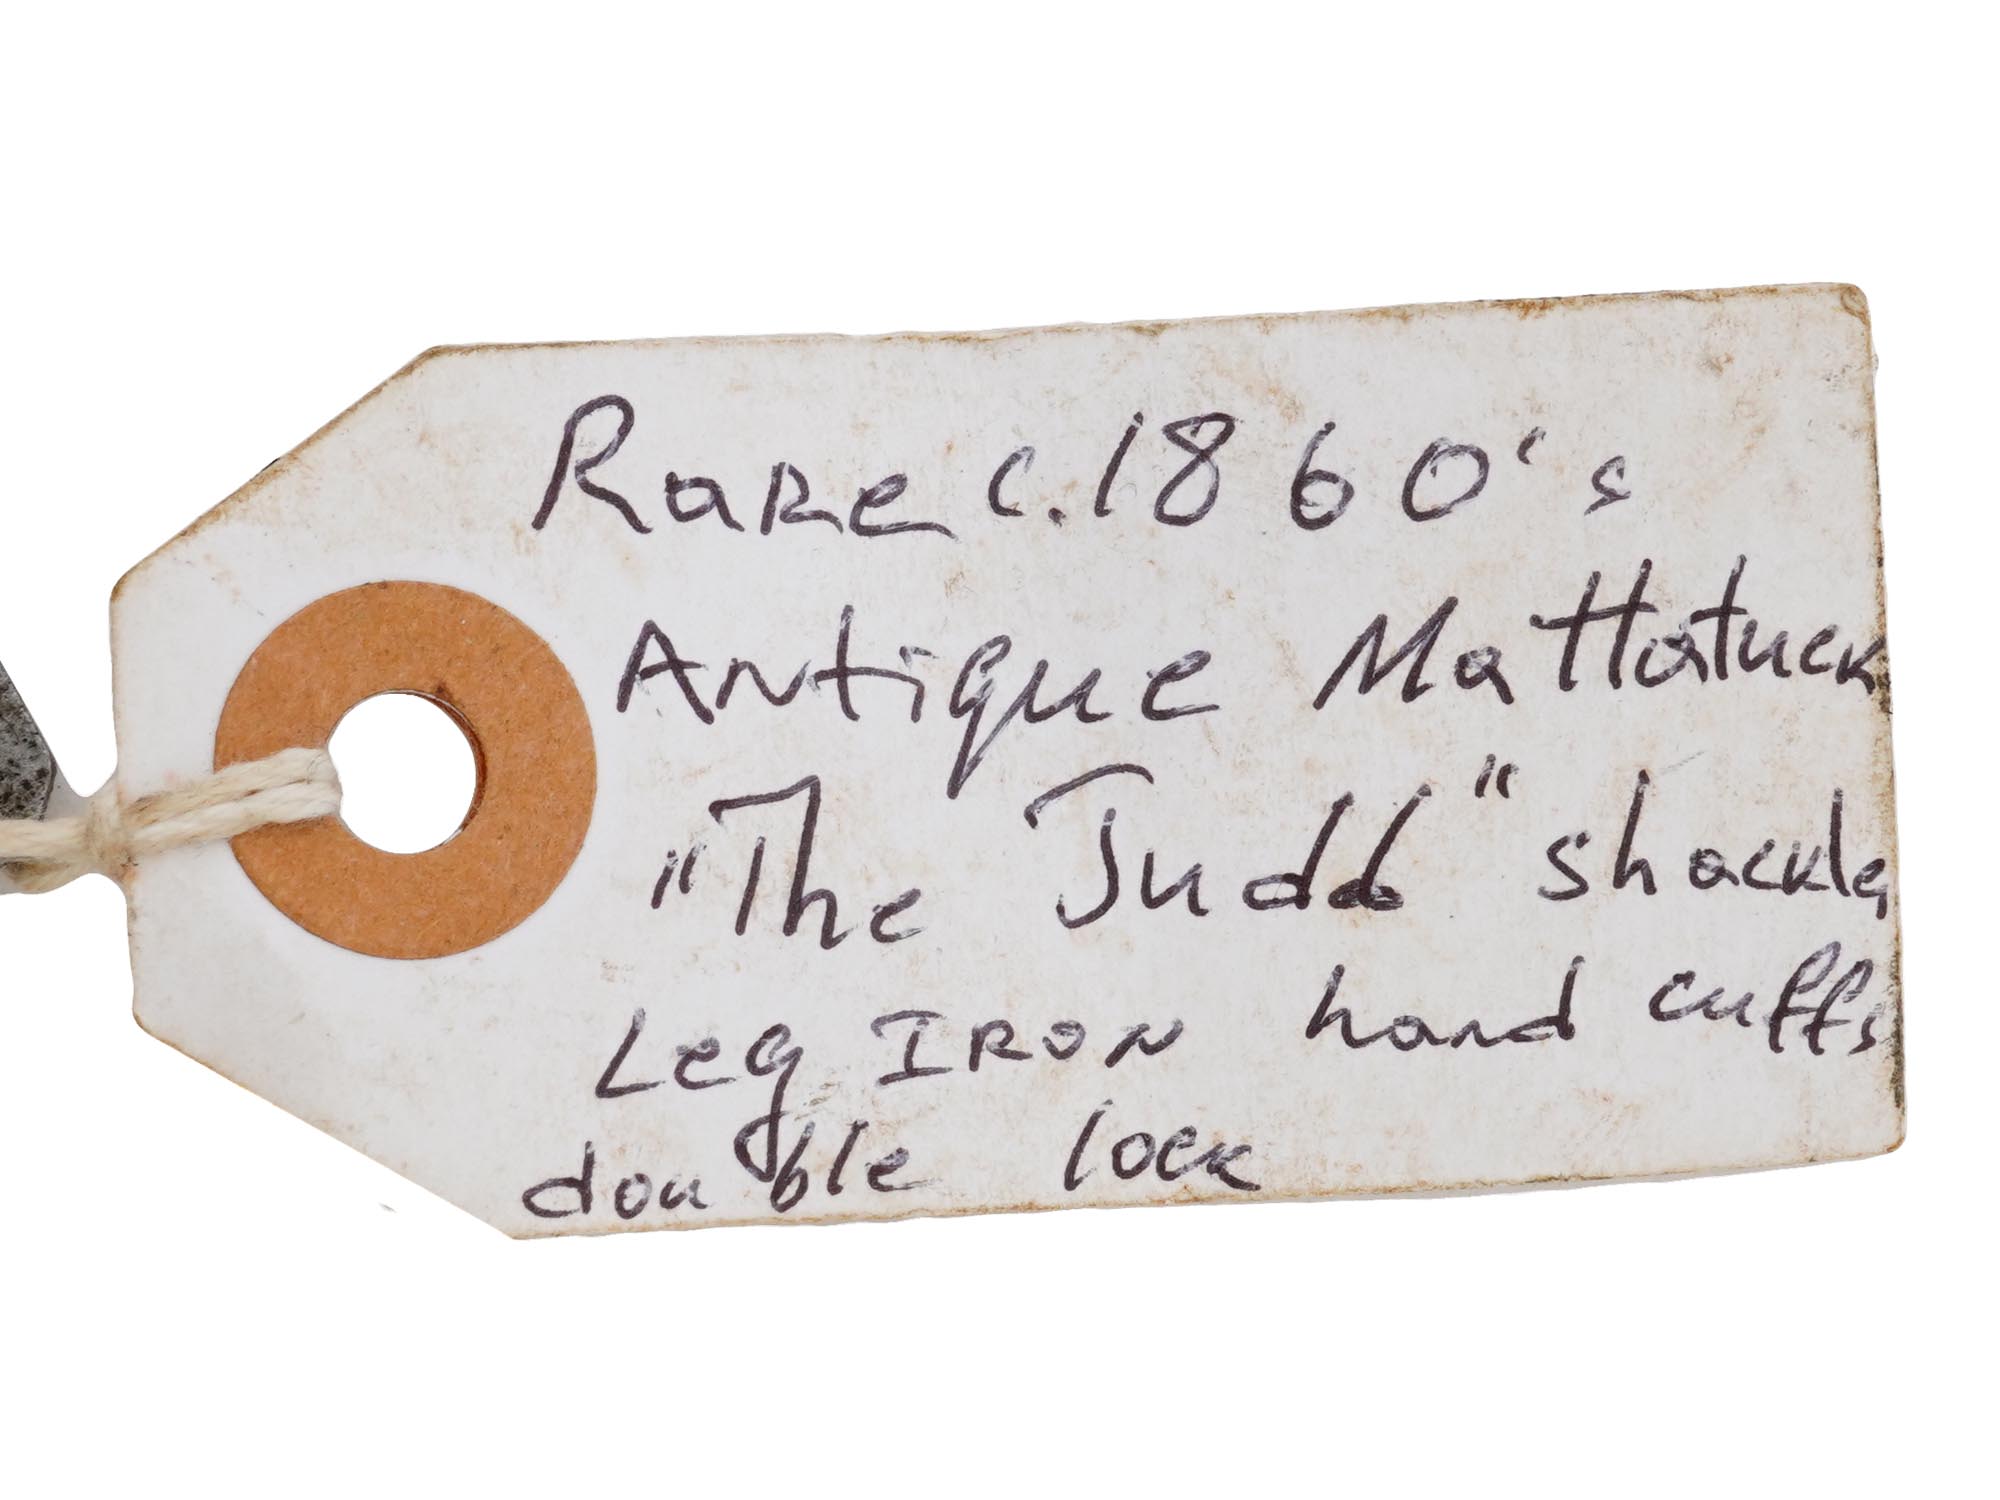 Rare c.1860's
Antique Mattatuck
"The Judd" shackle
Leg IRON hand cuffs
double lock